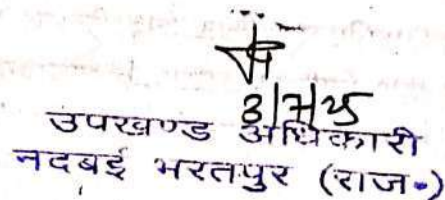 3/7/25
उपखण्ड अधिकारी
नदबई भरतपुर (राज॰)